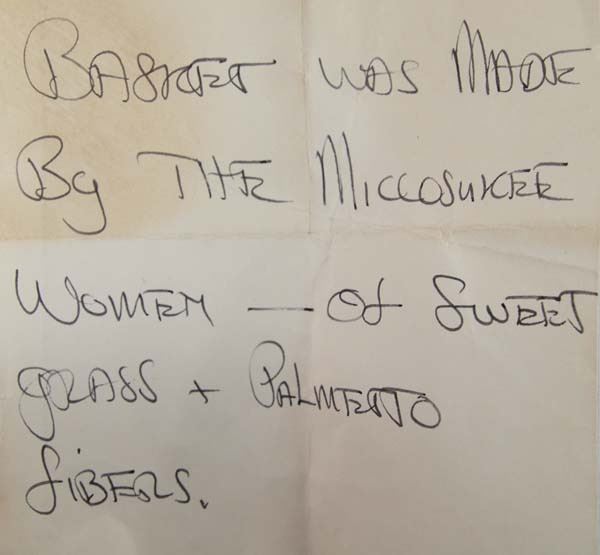 Basket was Made
By The Miccosukee
Women — of Sweet
grass + Palmetto
fibers.